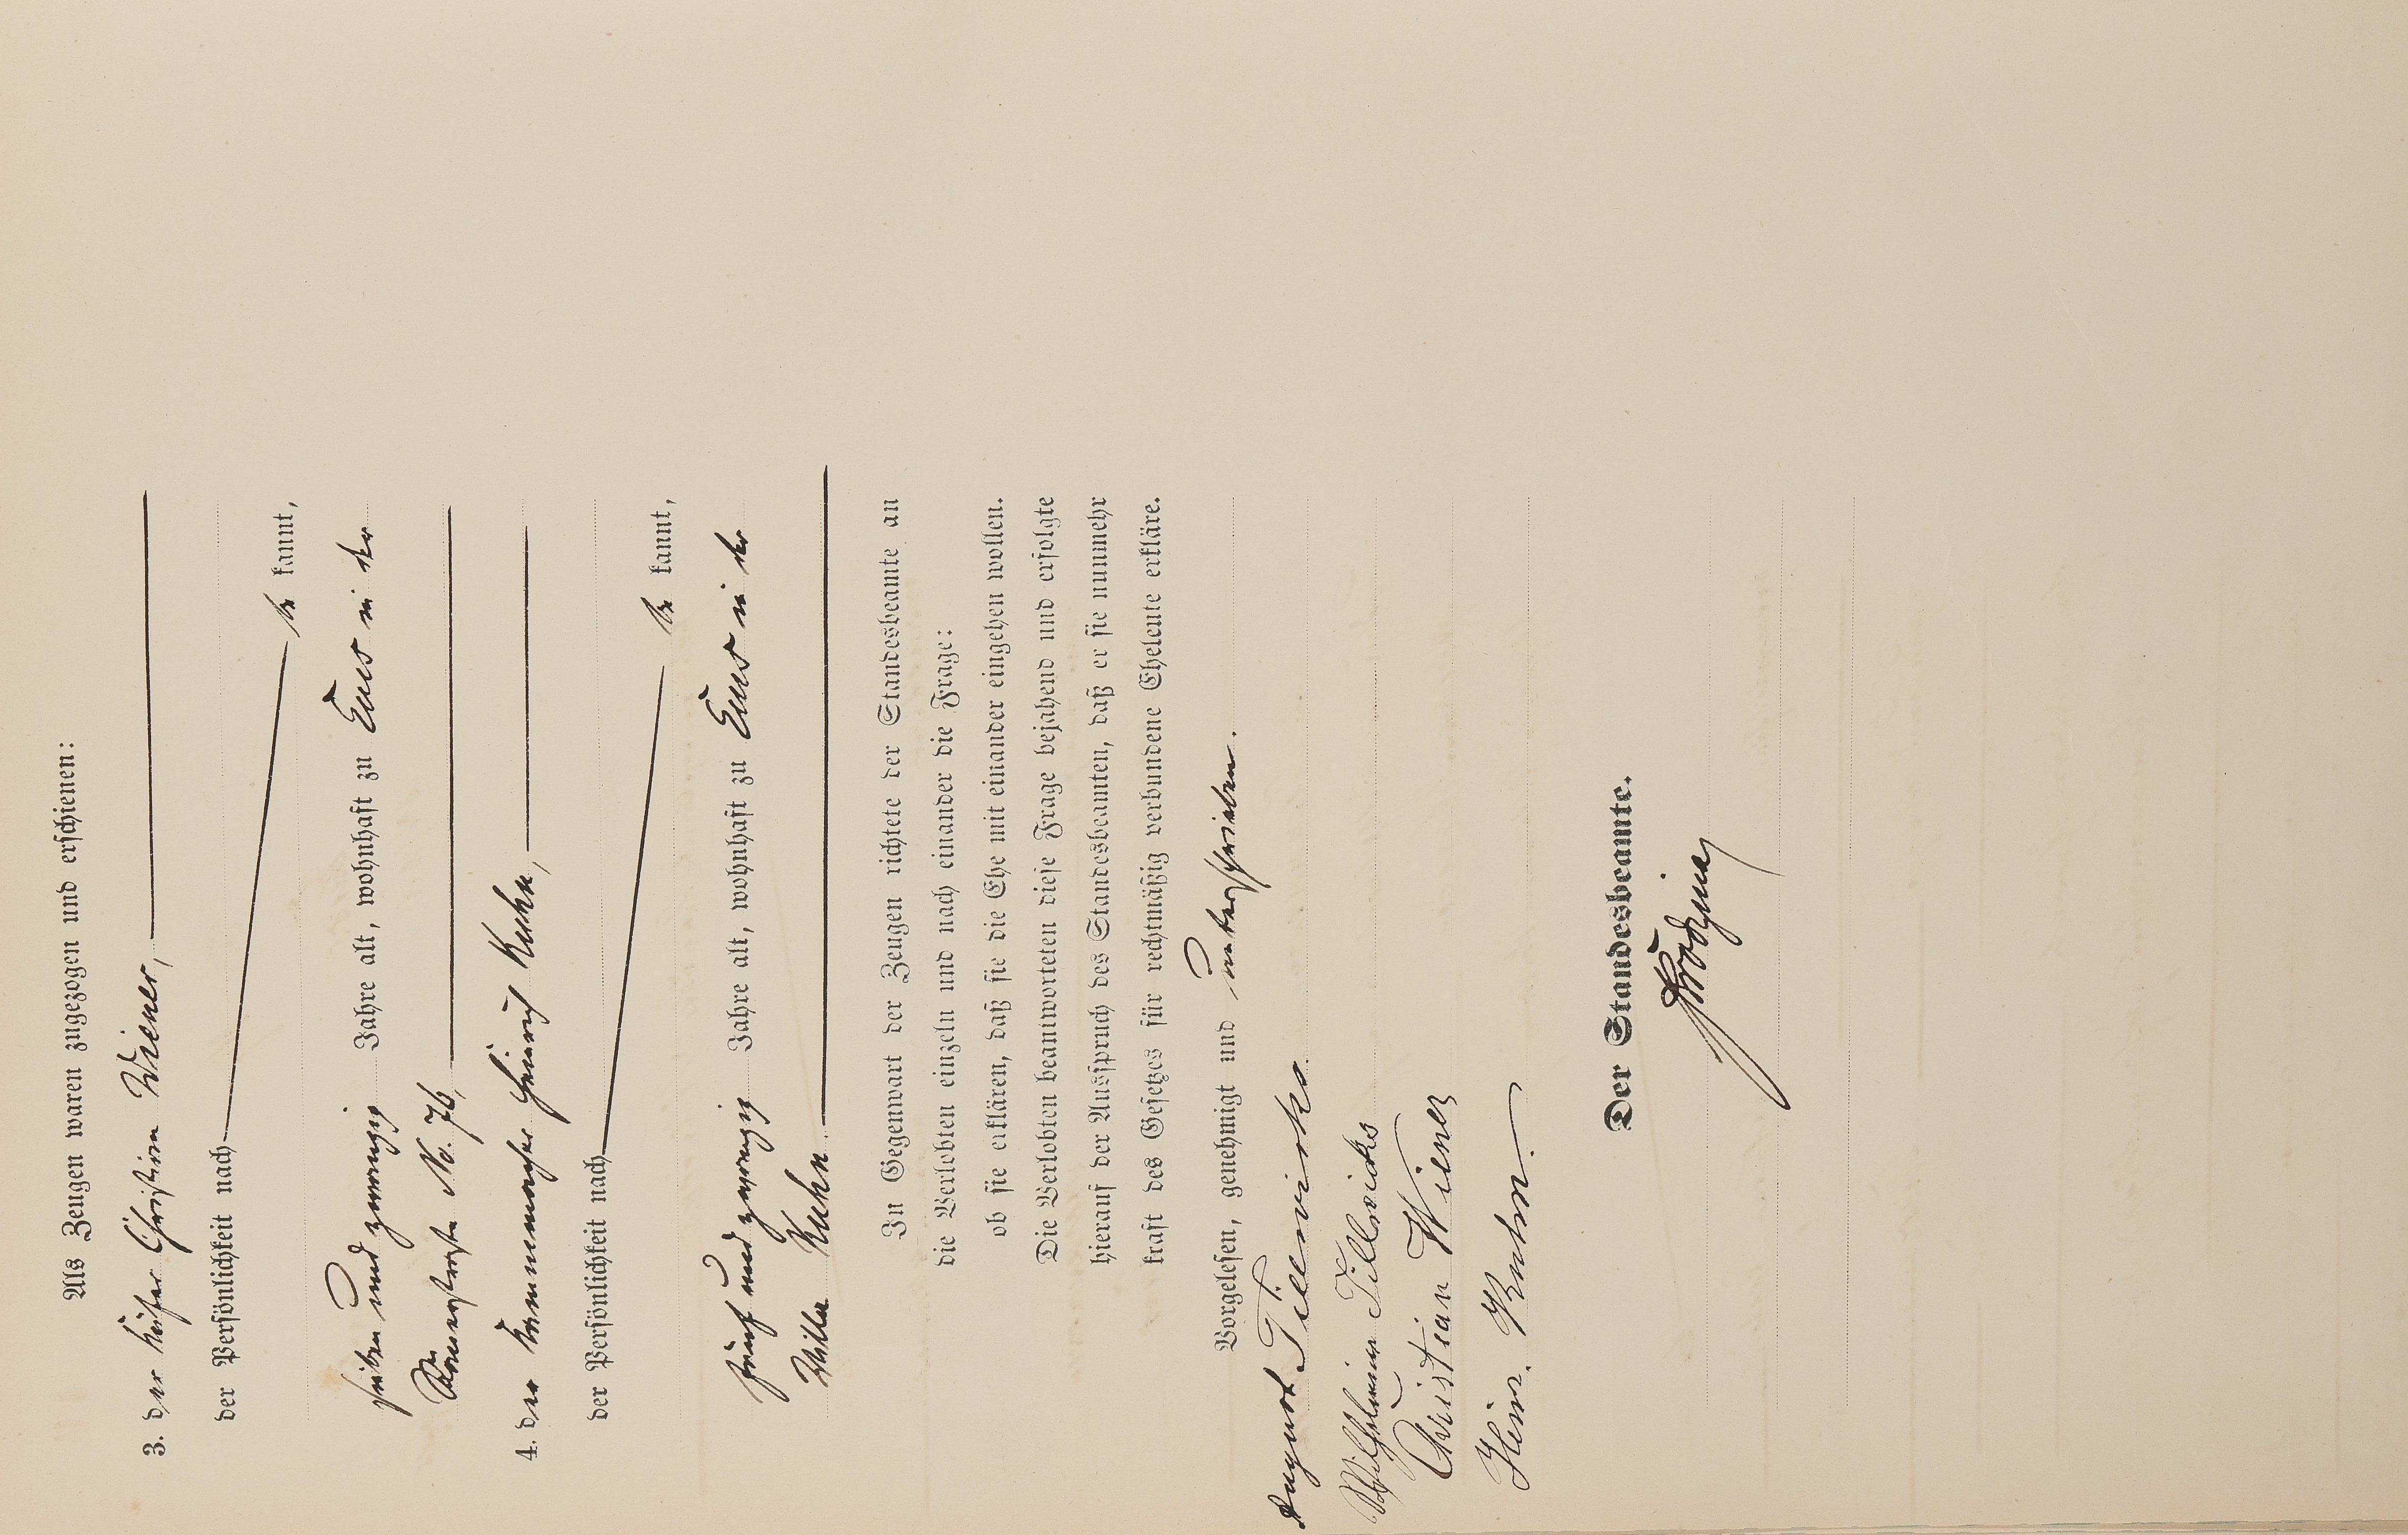 Als Zeugen waren zugezogen und erschienen:
3. der Küfer Christian Wiener,
der Persönlichkeit nach
be kannt,
sieben und zwanzig Jahre alt, wohnhaft zu Ems in der
No. 76,
4. der Heinrich Kuhn,
der Persönlichkeit nach
be kannt,
fünf und zwanzig Jahre alt, wohnhaft zu Ems in der
Villa Kuhn.
In Gegenwart der Zeugen richtete der Standesbeamte an
die Verlobten einzeln und nach einander die Frage:
ob sie erklären, daß sie die Ehe mit einander eingehen wollen.
Die Verlobten beantworteten diese Frage bejahend und erfolgte
hierauf der Ausspruch des Standesbeamten, daß er sie nunmehr
kraft des Gesetzes für rechtmäßig verbundene Eheleute erkläre.
Vorgelesen, genehmigt und unterschrieben.
August
Wilhelmine
Christian Wiener
Heinr. Kuhn.
Der Standesbeamte.